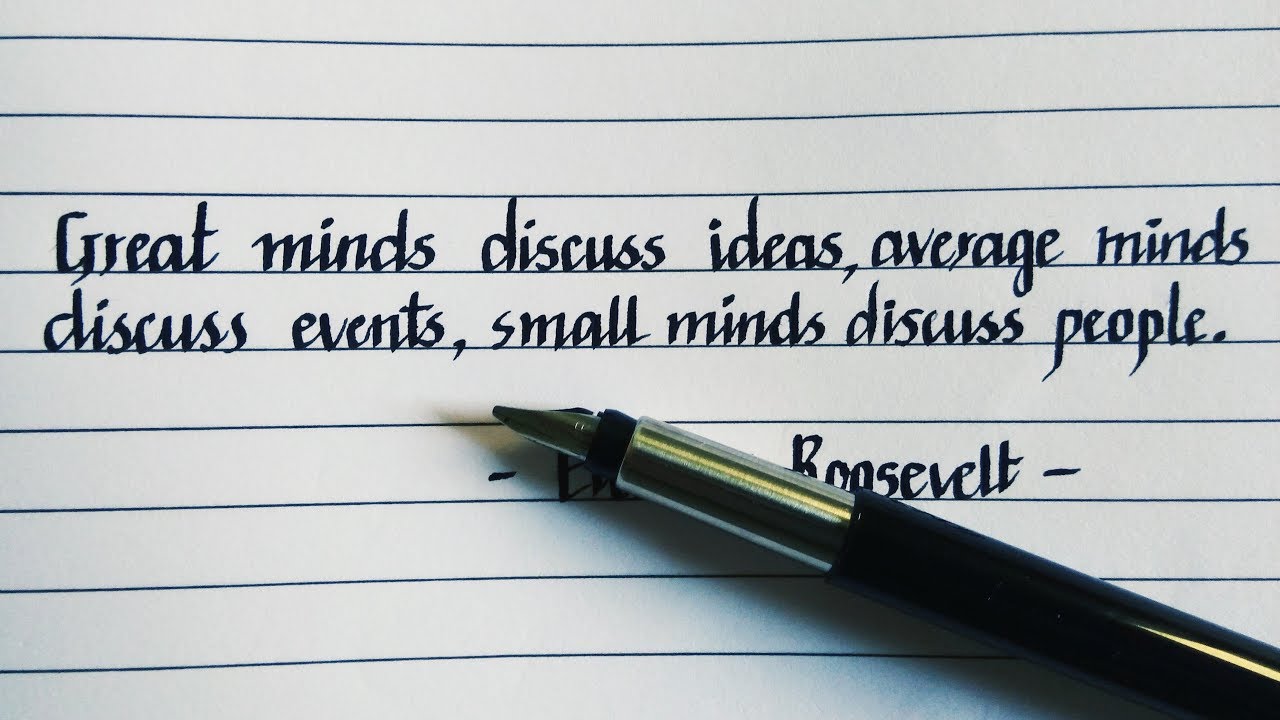 Great minds discuss ideas, average minds
discuss events, small minds discuss people.
- Roosevelt -